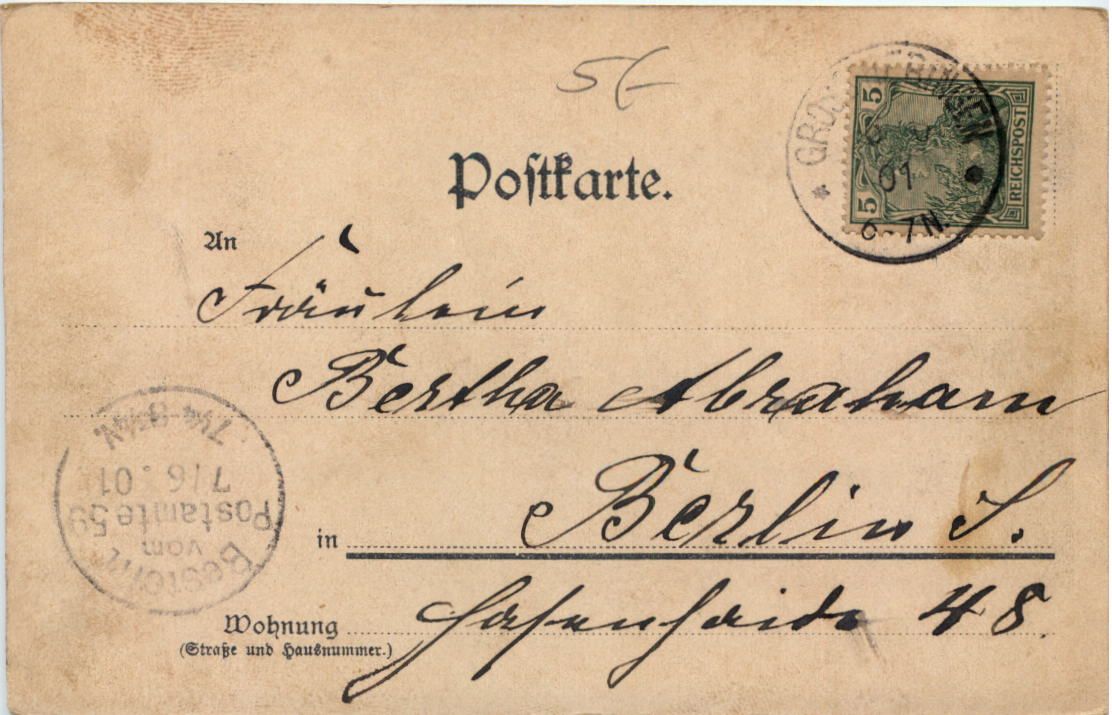 5/-
Postkarte.
5 5 REICHSPOST
01
6-7N.
An
Fräulein
Bertha Abraham
in Berlin S.
Wohnung Hasenhaide 48.
(Straße und Hausnummer.)
Bestellt
vom
Postamte 59
7/6.01
7¼-8¼N